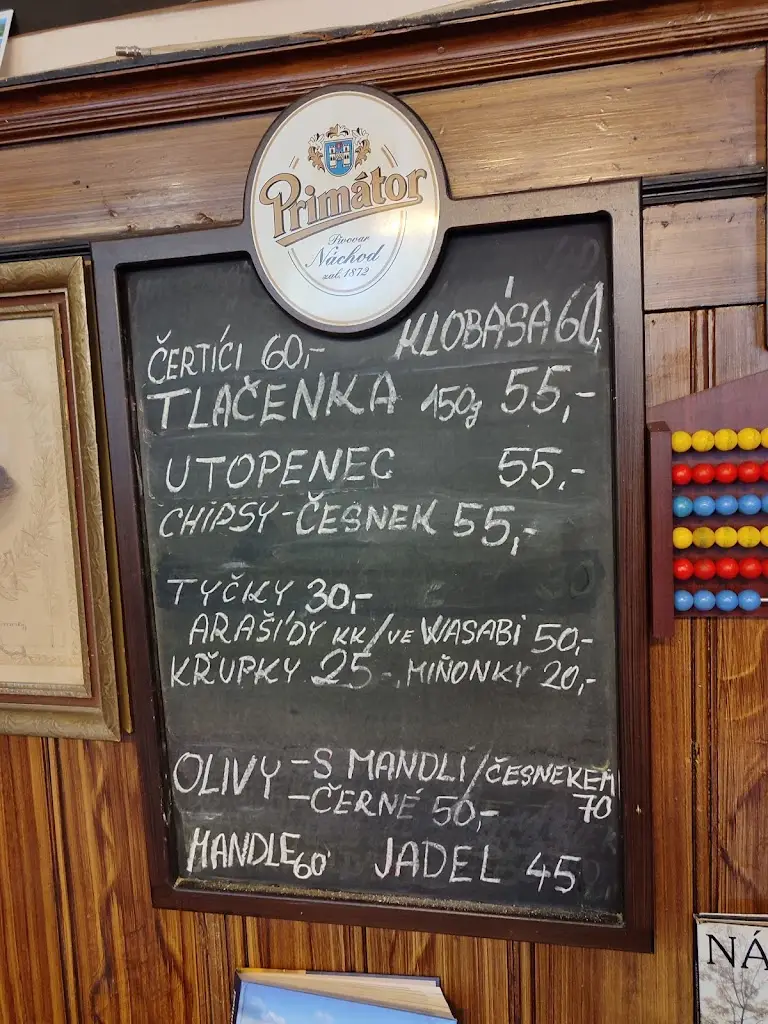 Primátor
Pivovar
Náchod
zal. 1872
ČERTÍCI 60,- KLOBÁSA 60,-
TLAČENKA 150g 55,-
UTOPENEC 55,-
CHIPSY-ČESNEK 55,-
TYČKY 30,-
ARAŠÍDY KK/VE WASABI 50,-
KŘUPKY 25-, MIŇONKY 20,-
OLIVY -S MANDLÍ/ČESNEKEM 70
-ČERNÉ 50,-
MANDLE 60 JADEL 45
NÁ